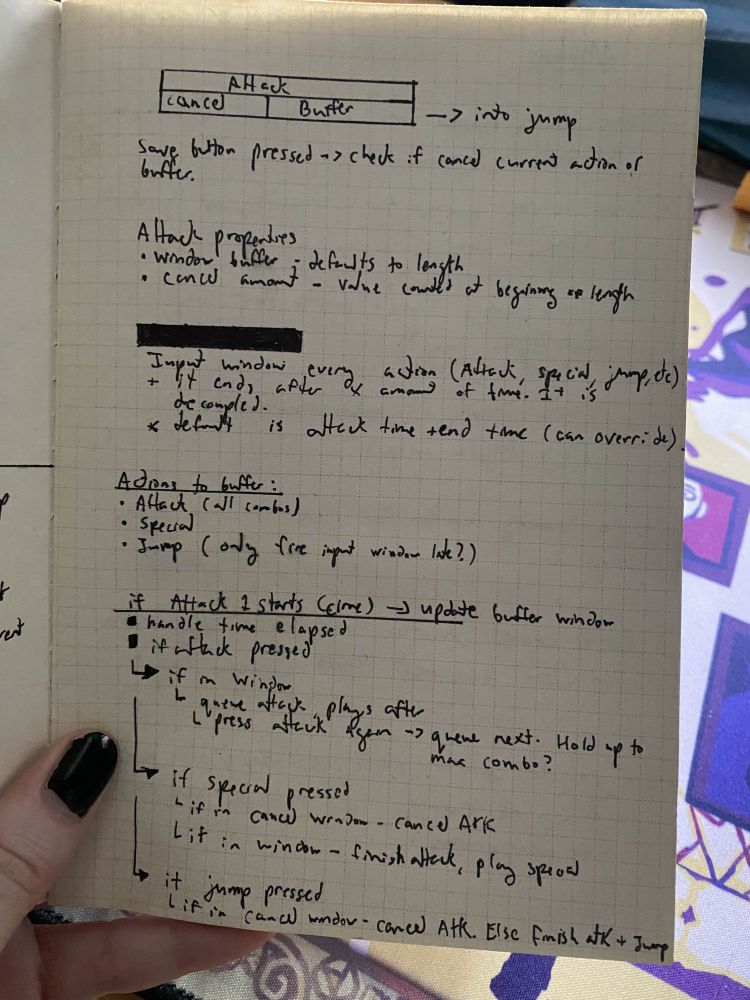 Attack
cancel Buffer
→ into jump
Save button pressed → check if cancel current action or
buffer.
Attack properties
• window buffer - defaults to length
• cancel amount - value counted at beginning length
Input window every action (Attack, special, jump, etc)
+ it ends after x amount of time. It is
decoupled.
* default is attack time + end time (can override).
Actions to buffer:
• Attack (all combos)
• Special
• Jump (only free input window late?)
if Attack 1 starts (time) → update buffer window
▪ handle time elapsed
▪ if attack pressed
↳ if in window
└ queue attack, plays after
└ press attack again → queue next. Hold up to
max combo?
→ if special pressed
└ if in cancel window - cancel ATK
└ if in window - finish attack, play special
→ if jump pressed
└ if in cancel window - cancel Atk. Else finish atk + Jump